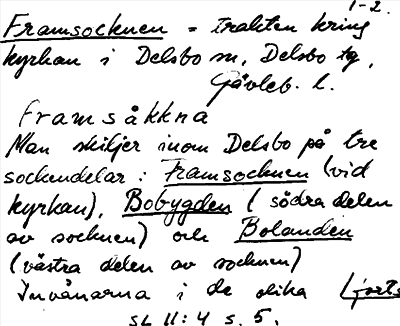 1-2.
Framsocknen = trakten kring
kyrkan i Delsbo sn, Delsbo tg,
Gävleb. l.
framsåkkna
Man skiljer inom Delsbo på tre
sockendelar: Framsocknen (vid
kyrkan), Bobygden (södra delen
av socknen) och Bolanden
(västra delen av socknen)
Invånarna i de olika (forts
SL 11:4 s. 5.